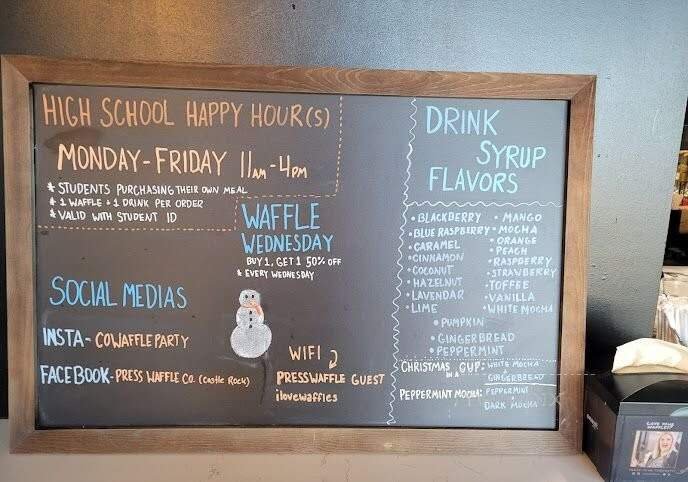 HIGH SCHOOL HAPPY HOUR(S)
MONDAY-FRIDAY 11AM-4PM
* STUDENTS PURCHASING THEIR OWN MEAL
* 1 WAFFLE + 1 DRINK PER ORDER
* VALID WITH STUDENT ID
WAFFLE
WEDNESDAY
BUY 1, GET 1 50% OFF
* EVERY WEDNESDAY
SOCIAL MEDIAS
INSTA- COWAFFLEPARTY
FACEBOOK- PRESS WAFFLE CO. (Castle Rock)
WIFI
PRESSWAFFLE GUEST
ilovewaffles
DRINK
SYRUP
FLAVORS
• BLACKBERRY
• BLUE RASPBERRY
• CARAMEL
• CINNAMON
• COCONUT
• HAZELNUT
• LAVENDAR
• LIME
• MANGO
• MOCHA
• ORANGE
• PEACH
• RASPBERRY
• STRAWBERRY
• TOFFEE
• VANILLA
• WHITE MOCHA
• PUMPKIN
• GINGERBREAD
• PEPPERMINT
CHRISTMAS IN A CUP: WHITE MOCHA
GINGERBREAD
PEPPERMINT MOCHA: PEPPERMINT
DARK MOCHA